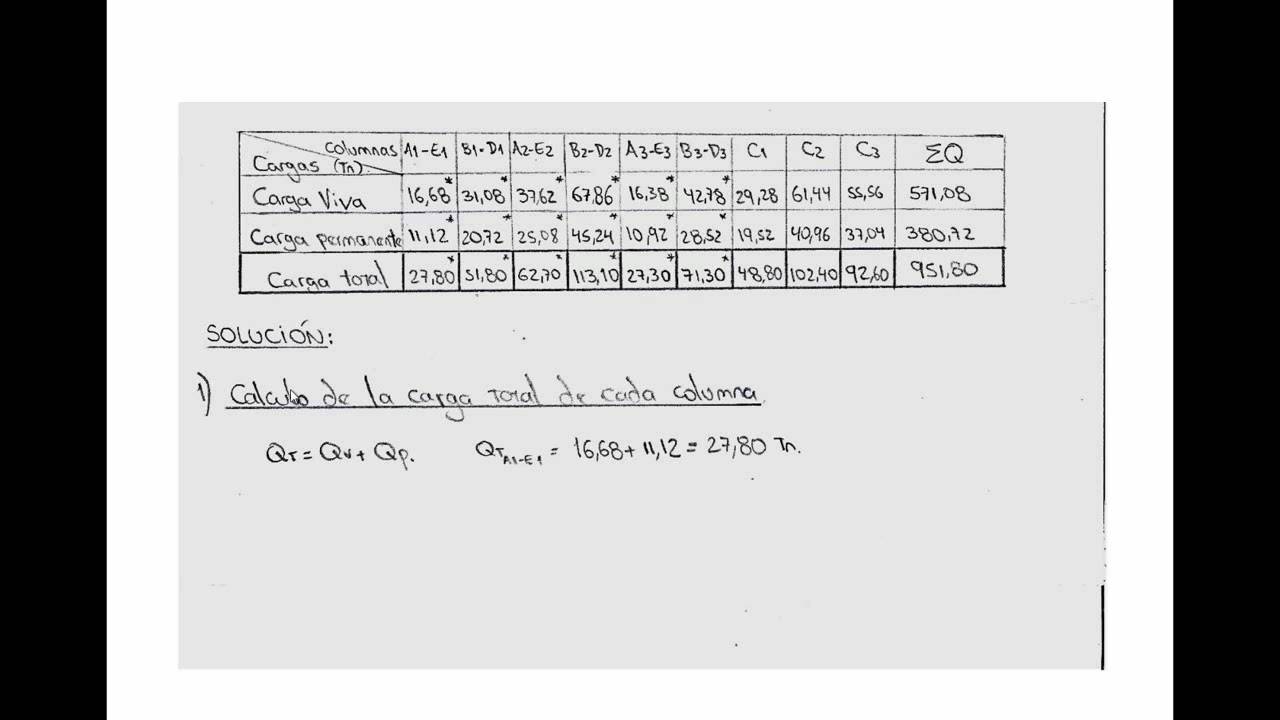 Columnas A1-E1 B1-D1 A2-E2 B2-D2 A3-E3 B3-D3 C1 C2 C3 ΣQ
Cargas (Tn)
Carga Viva 16,68* 31,08* 37,62* 67,86* 16,38* 42,78* 29,28 61,44 55,56 571,08
Carga permanente 11,12* 20,72* 25,08* 45,24* 10,92* 28,52* 19,52 40,96 37,04 380,72
Carga total 27,80* 51,80* 62,70* 113,10* 27,30* 71,30* 48,80 102,40 92,60 951,80
SOLUCIÓN:
1) Calculo de la carga total de cada columna.
QT = QV + QP. QT A1-E1 = 16,68 + 11,12 = 27,80 Tn.